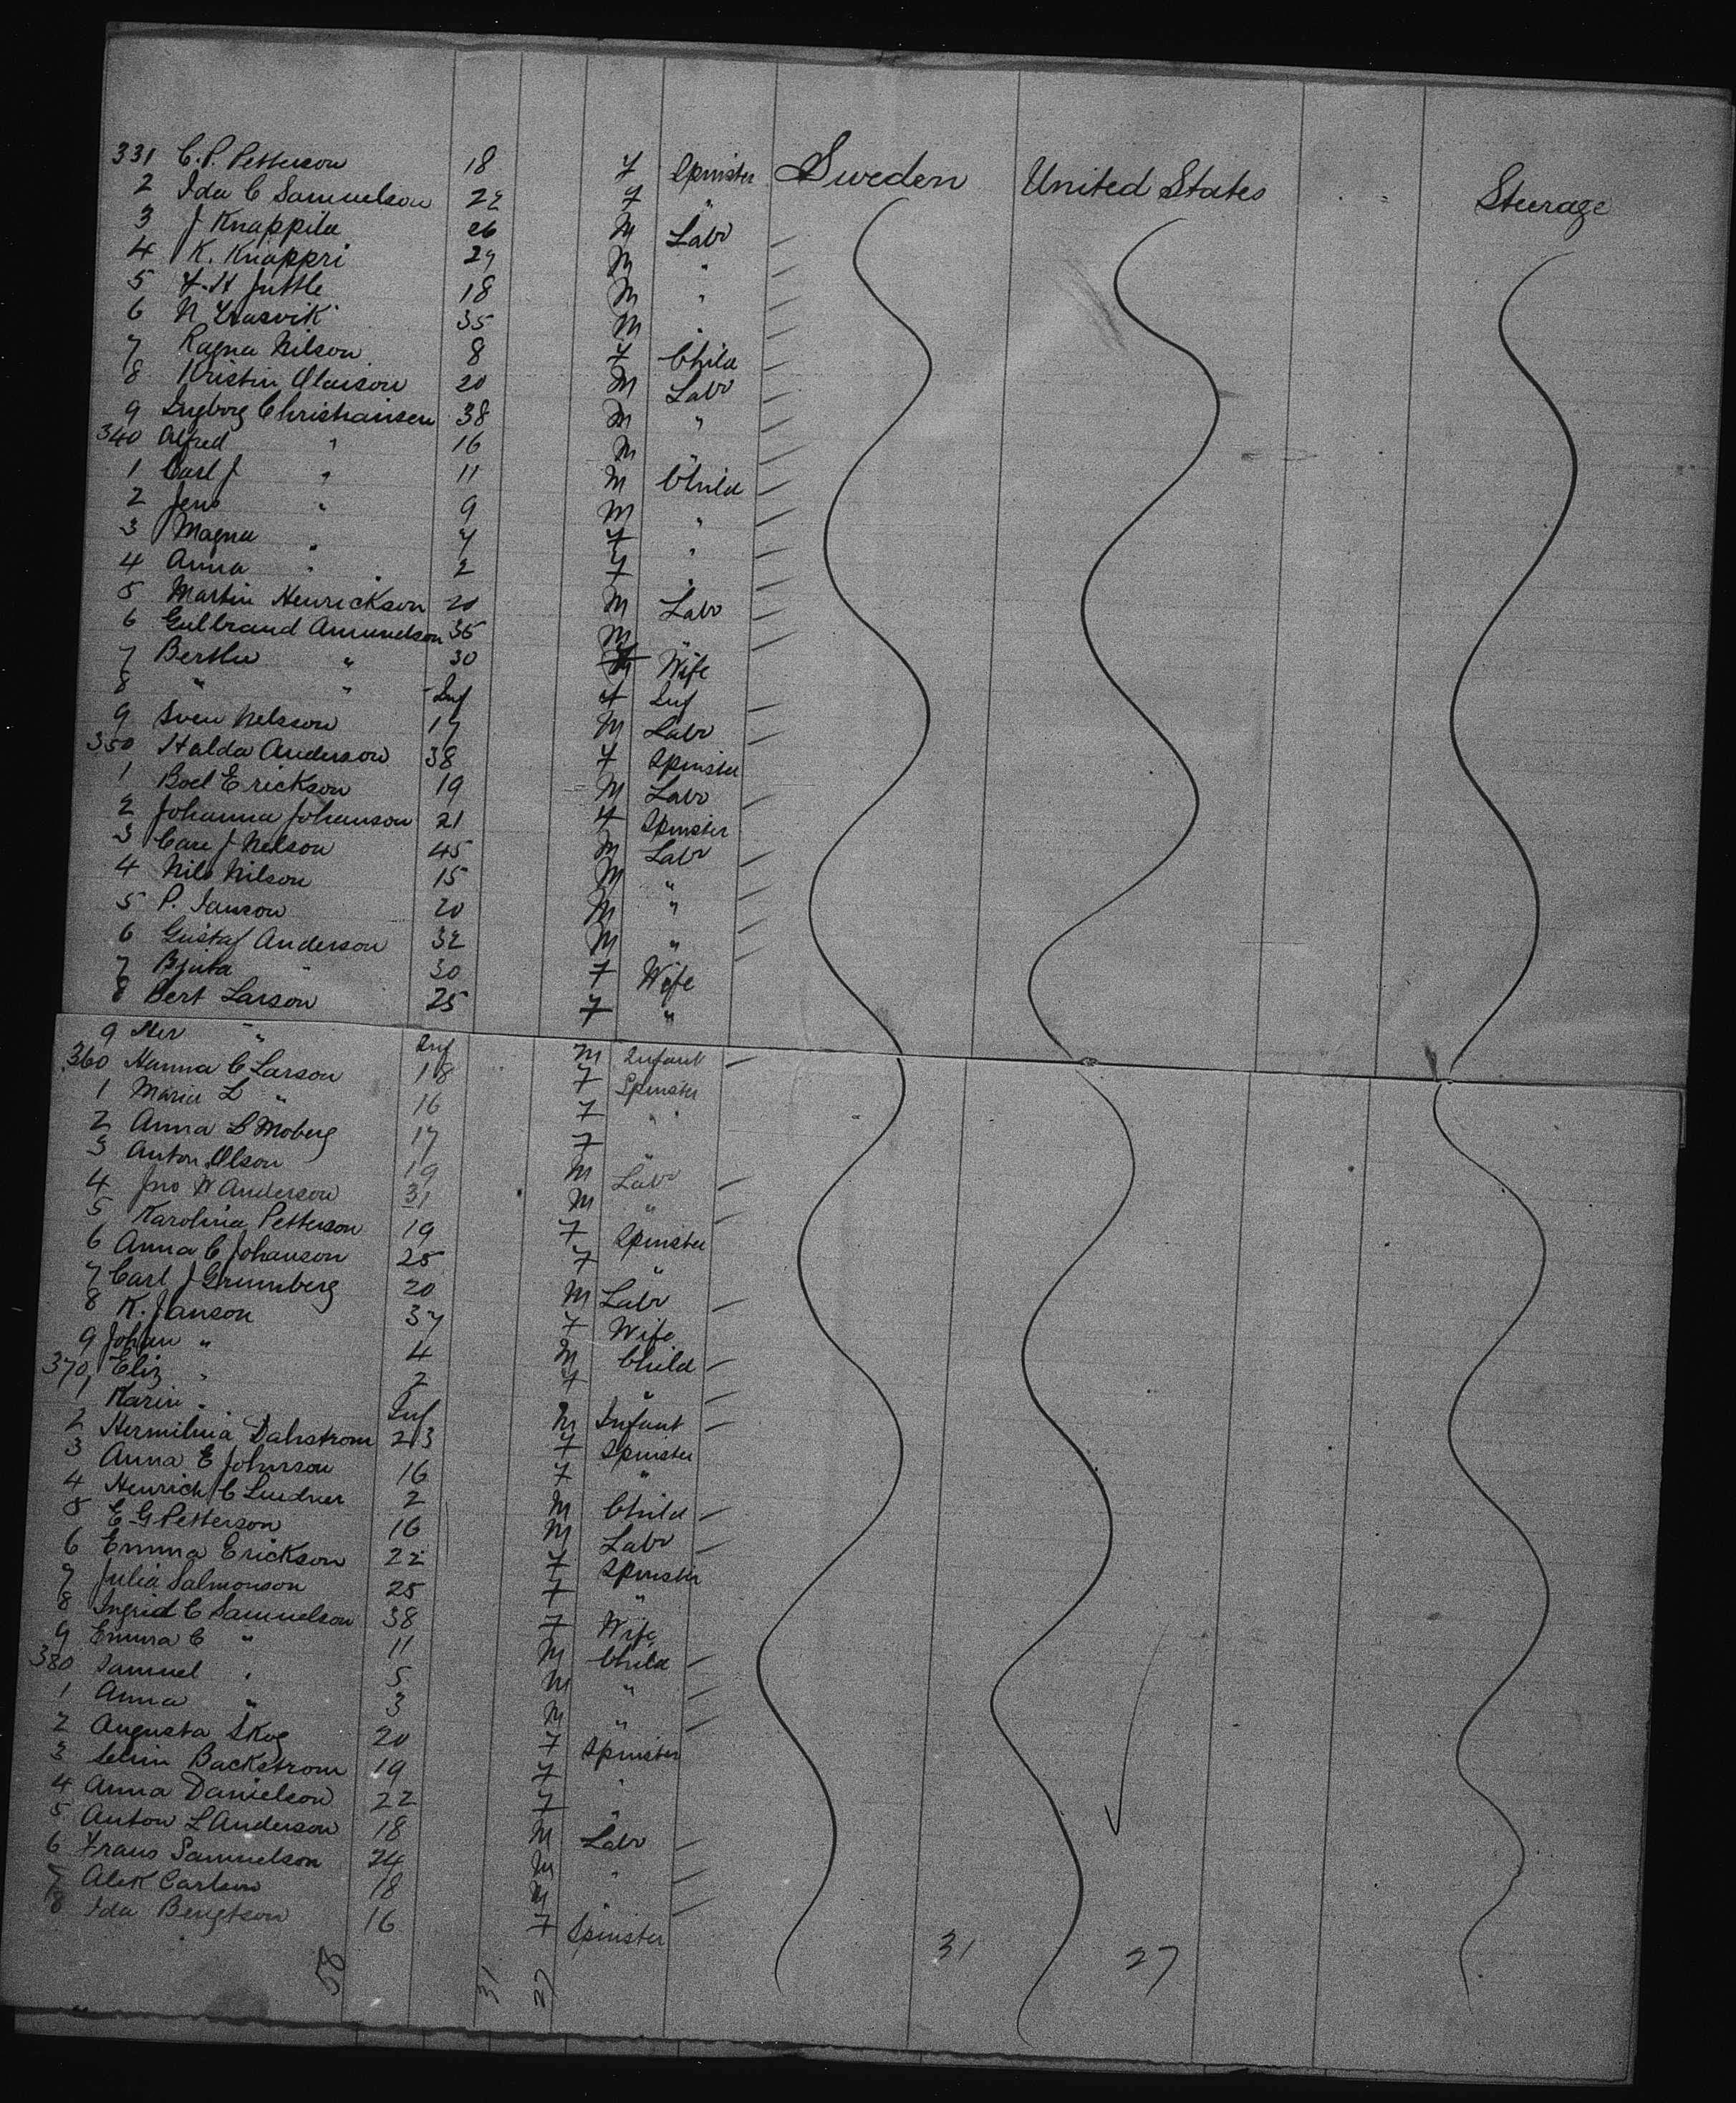 331 C. P. Petterson 18 F Spinster Sweden United States Steerage
2 Ida C Samuelson 22 F "
3 J Knappila 26 M Labr
4 K. Knappri 29 M "
5 F. H Juttle 18 M "
6 N 35 M "
7 Ragna Nilson 8 F Child
8 Kristin Olauson 20 M Labr
9 Ingborg Christiansen 38 M "
340 Alfred " 16 M "
1 Carl J " 11 M Child
2 Jens " 9 M "
3 Magna " 7 F "
4 Anna " 2 F "
5 Martin Henrickson 20 M Labr
6 Gulbrand Amundson 36 M "
7 Berthe " 30 F Wife
8 " " Inf F Inf
9 Sven Nelsson 17 M Labr
350 Halda Anderson 38 F Spinster
1 Boel Erickson 19 M Labr
2 Johanna Johanson 21 F Spinster
3 Carl J Nelson 45 M Labr
4 Nils Nilson 15 M "
5 P. Janson 20 M "
6 Gustaf Anderson 32 M "
7 " 30 F Wife
8 Bert Larson 25 F "
9 Per " Inf M Infant
360 Hanna C Larson 18 F Spinster
1 Maria L " 16 F "
2 Anna L Moberg 17 F "
3 Anton Olson 19 M Labr
4 Jno W Anderson 31 M "
5 Karolina Petterson 19 F Spinster
6 Anna C Johanson 25 F "
7 Carl J Grunnberg 20 M Labr
8 K. Janson 37 F Wife
9 Johan " 4 M Child
370 Eliz " 2 F "
1 Karin " Inf M Infant
2 Hermilina Dahstrom 23 F Spinster
3 Anna E Johnson 16 F "
4 Henrich C Lindner 2 M Child
5 E G Petterson 16 M Labr
6 Emma Erickson 22 F Spinster
7 Julia Salmonson 25 F "
8 Ingrid C Samuelson 38 F Wife
9 Emma C " 11 M Child
380 Samuel " 5 M "
1 Anna " 3 M "
2 Augusta Skog 20 F Spinster
3 Selim Backstrom 19 F "
4 Anna Danielson 22 F "
5 Anton L Anderson 18 M Labr
6 Frans Samuelson 24 M "
7 Alek Carlson 18 M "
8 Ida Bengtson 16 F Spinster
31 27
58 31 27